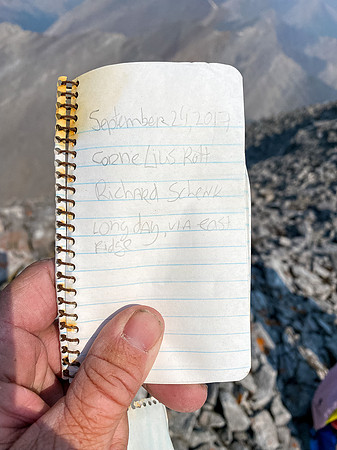 September 24, 2017
Cornelius Rott
Richard Schenk
Long day, via east
ridge